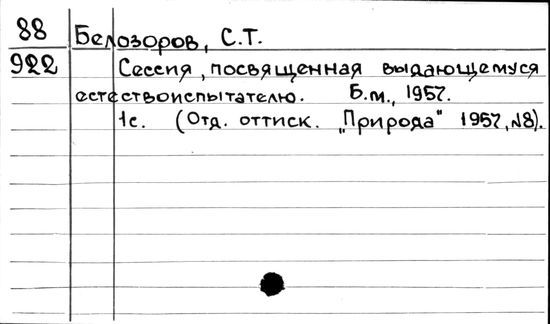 88 Белозоров, С.Т.
922 Сессия, посвященная выдающемуся
естествоиспытателю. Б.м., 1957.
1с. (Отд. оттиск. „Природа" 1957, №8).